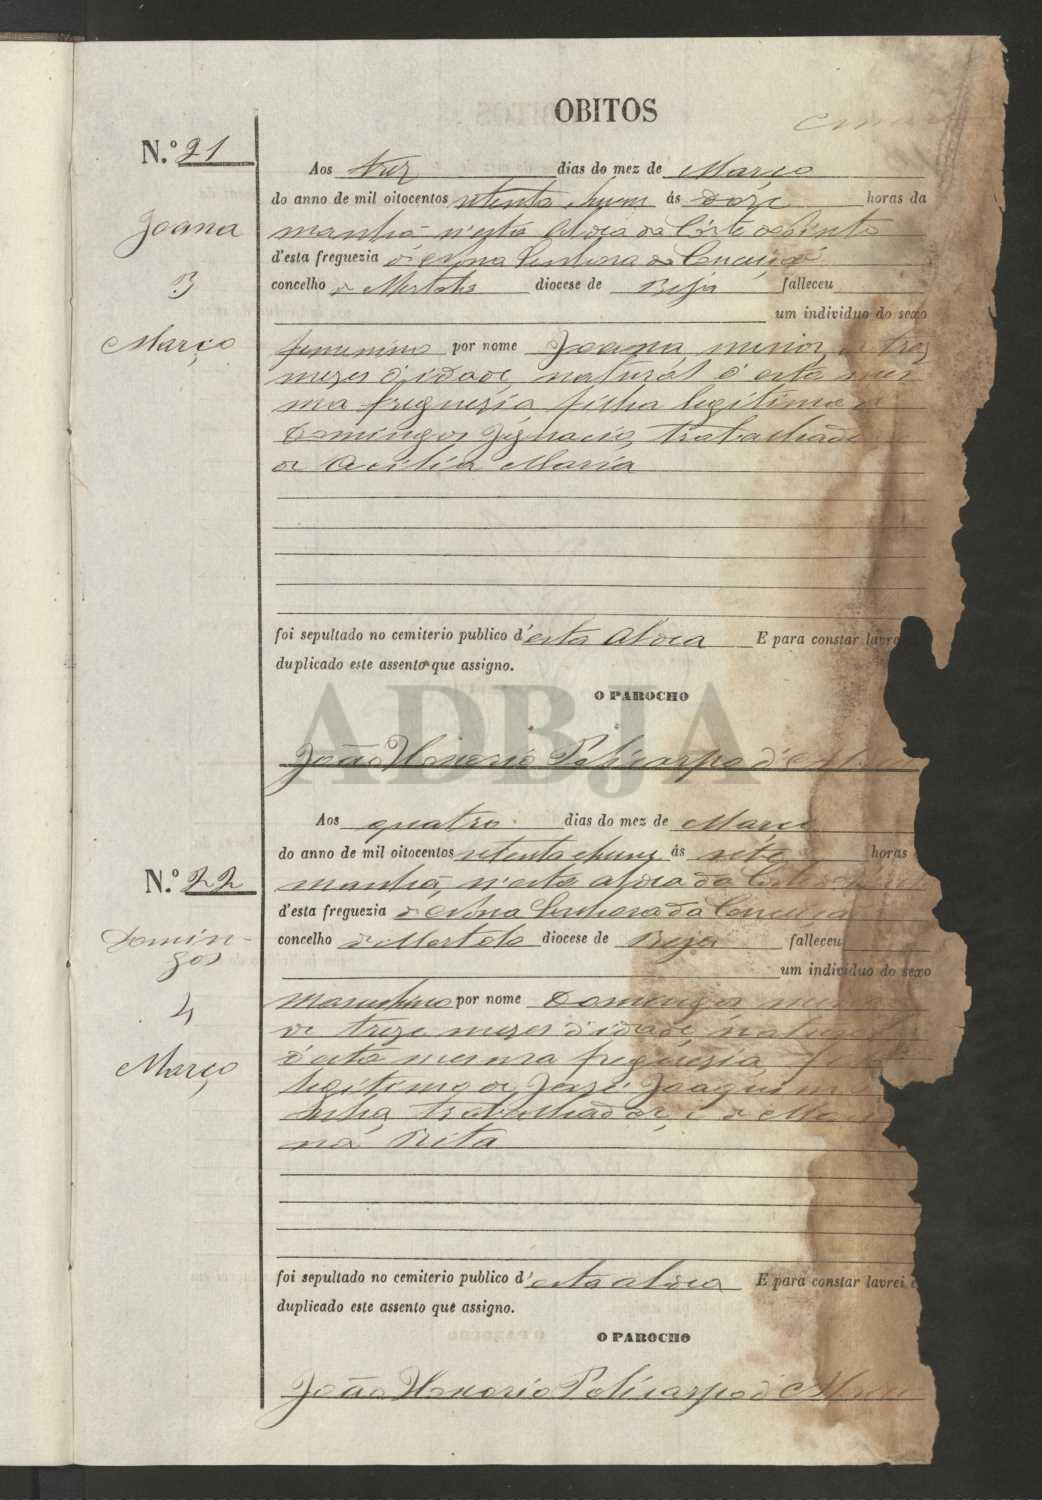 OBITOS
N.º 21
Joana
3
Março
Aos tres dias do mez de Março
do anno de mil oitocentos setenta e hum ás doze horas da
manhã n'esta Aldea da Côrte do Pinto
d'esta freguezia de Nossa Senhora da Conceição
concelho de Mertola diocese de Beja falleceu
um individuo do sexo
femenino por nome Joana, menor, de tres
mezes d'idade, natural d'esta mes-
ma freguezia filha legitima de
Domingos Ignacio, trabalhador
de Maria
foi sepultado no cemiterio publico d'esta Aldea E para constar lavrei
duplicado este assento que assigno.
O PAROCHO
João Honorio Policarpo d'
ADBJA
N.º 22
Domin-
gos
4
Março
Aos quatro dias do mez de Março
do anno de mil oitocentos setenta e hum ás sete horas
manhã, n'esta aldea da Corte do
d'esta freguezia de Nossa Senhora da Conceição
concelho de Mertola diocese de Beja falleceu
um individuo do sexo
masculino por nome Domingos menor
de treze mezes d'idade, natural
d'esta mesma freguezia, filho
legitimo de José Joaquim
trabalhador, e de Ma
na Rita
foi sepultado no cemiterio publico d'esta aldea E para constar lavrei e
duplicado este assento que assigno.
O PAROCHO
João Honorio Policarpo d'